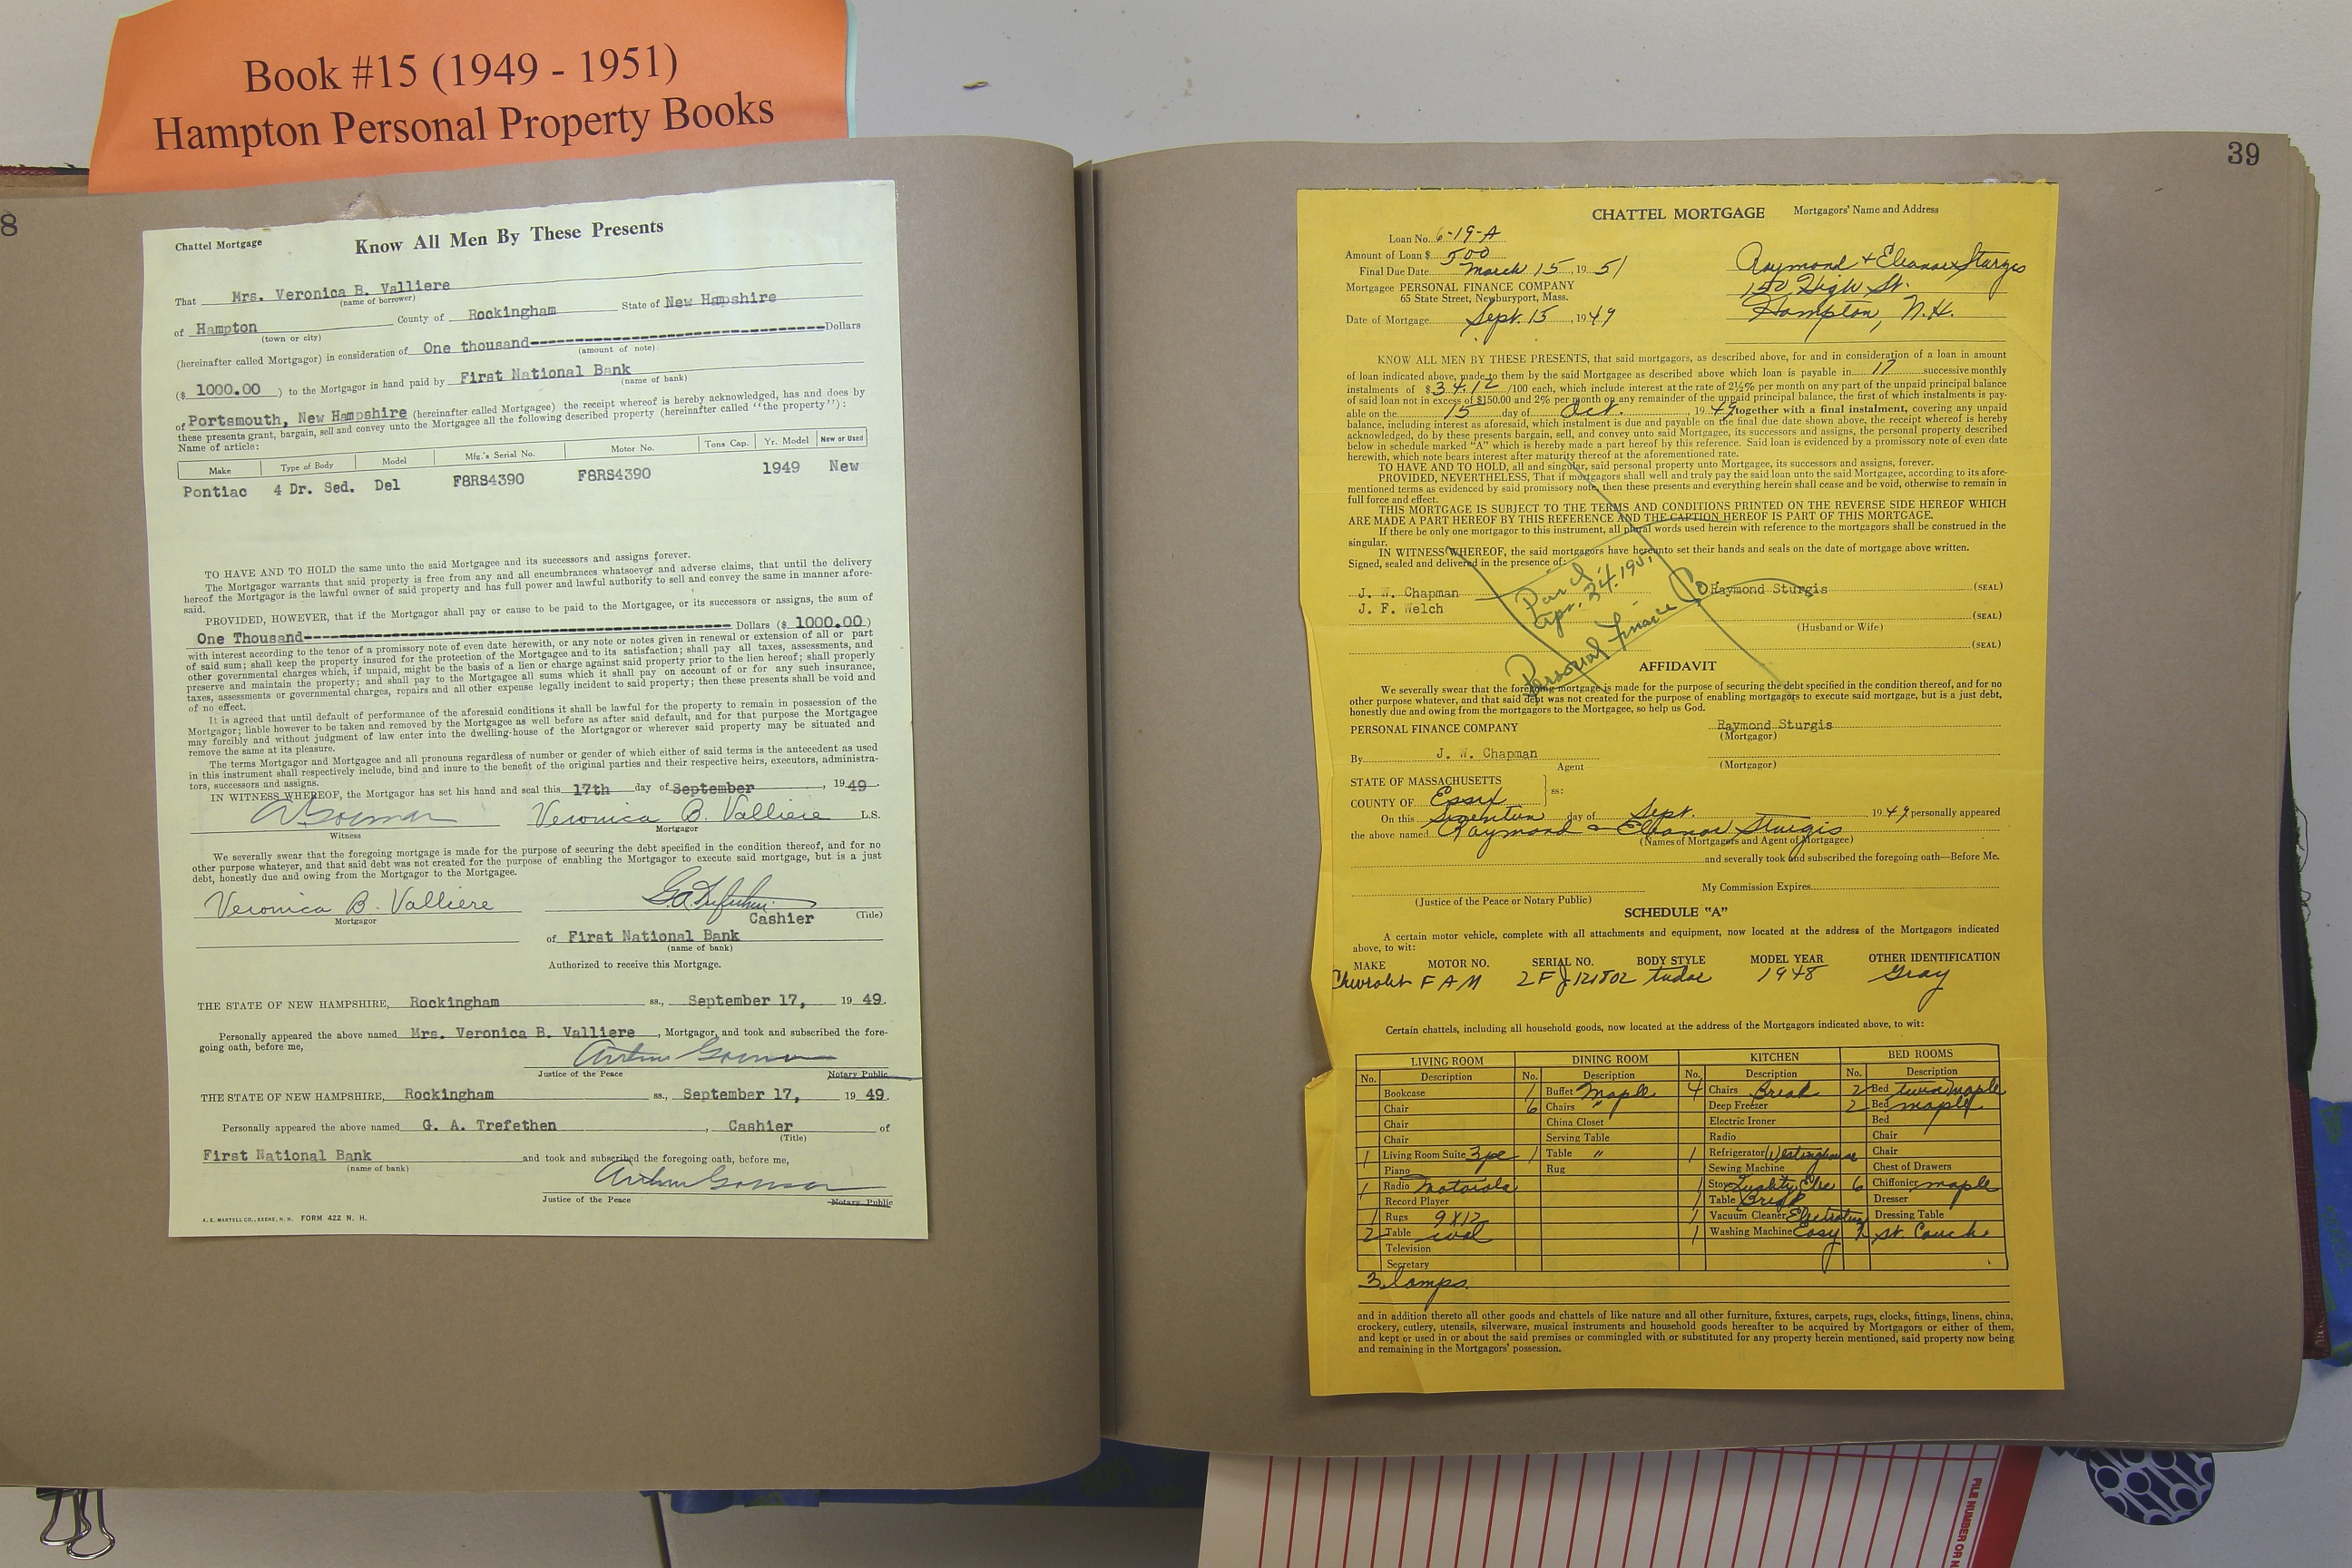 Book #15 (1949 - 1951)
Hampton Personal Property Books
8
Chattel Mortgage
Know All Men By These Presents
That Mrs. Veronica B. Valliere
(name of borrower)
of Hampton County of Rockingham State of New Hampshire
(town or city)
(hereinafter called Mortgagor) in consideration of One thousand Dollars
(amount of note)
($ 1000.00 ) to the Mortgagor in hand paid by First National Bank
(name of bank)
of Portsmouth, New Hampshire (hereinafter called Mortgagee) the receipt whereof is hereby acknowledged, has and does by
these presents grant, bargain, sell and convey unto the Mortgagee all the following described property (hereinafter called "the property"):
Name of article:
Make Type of Body Model Mfg.'s Serial No. Motor No. Tons Cap. Yr. Model New or Used
Pontiac 4 Dr. Sed. Del F8RS4390 F8RS4390 1949 New
TO HAVE AND TO HOLD the same unto the said Mortgagee and its successors and assigns forever.
The Mortgagor warrants that said property is free from any and all encumbrances whatsoever and adverse claims, that until the delivery
hereof the Mortgagor is the lawful owner of said property and has full power and lawful authority to sell and convey the same in manner afore-
said.
PROVIDED, HOWEVER, that if the Mortgagor shall pay or cause to be paid to the Mortgagee, or its successors or assigns, the sum of
One Thousand Dollars ($ 1000.00 )
with interest according to the tenor of a promissory note of even date herewith, or any note or notes given in renewal or extension of all or part
of said sum; shall keep the property insured for the protection of the Mortgagee and to its satisfaction; shall pay all taxes, assessments, and
other governmental charges which, if unpaid, might be the basis of a lien or charge against said property prior to the lien hereof; shall properly
preserve and maintain the property; and shall pay to the Mortgagee all sums which it shall pay on account of or for any such insurance,
taxes, assessments or governmental charges, repairs and all other expense legally incident to said property; then these presents shall be void and
of no effect.
It is agreed that until default of performance of the aforesaid conditions it shall be lawful for the property to remain in possession of the
Mortgagor; liable however to be taken and removed by the Mortgagee as well before as after said default, and for that purpose the Mortgagee
may forcibly and without judgment of law enter into the dwelling-house of the Mortgagor or wherever said property may be situated and
remove the same at its pleasure.
The terms Mortgagor and Mortgagee and all pronouns regardless of number or gender of which either of said terms is the antecedent as used
in this instrument shall respectively include, bind and inure to the benefit of the original parties and their respective heirs, executors, administra-
tors, successors and assigns.
IN WITNESS WHEREOF, the Mortgagor has set his hand and seal this 17th day of September , 19 49.
Veronica B. Valliere L.S.
Witness Mortgagor
We severally swear that the foregoing mortgage is made for the purpose of securing the debt specified in the condition thereof, and for no
other purpose whatever, and that said debt was not created for the purpose of enabling the Mortgagor to execute said mortgage, but is a just
debt, honestly due and owing from the Mortgagor to the Mortgagee.
Veronica B. Valliere G.A. Trefethen
Mortgagor Cashier (Title)
of First National Bank
(name of bank)
Authorized to receive this Mortgage.
THE STATE OF NEW HAMPSHIRE, Rockingham ss., September 17, 19 49.
Personally appeared the above named Mrs. Veronica B. Valliere , Mortgagor, and took and subscribed the fore-
going oath, before me,
Arthur
Justice of the Peace Notary Public
THE STATE OF NEW HAMPSHIRE, Rockingham ss., September 17, 19 49.
Personally appeared the above named G. A. Trefethen , Cashier of
(Title)
First National Bank and took and subscribed the foregoing oath, before me,
(name of bank)
Arthur
Justice of the Peace Notary Public
A. E. MARTELL CO., KEENE, N. H. FORM 422 N. H.
39
CHATTEL MORTGAGE Mortgagors' Name and Address
Loan No. 6-19-A
Amount of Loan $ 500
Final Due Date March 15, 19 51
Mortgagee PERSONAL FINANCE COMPANY
65 State Street, Newburyport, Mass.
Date of Mortgage Sept. 15, 19 49
Raymond + Eleanor Sturgis
150 High St.
Hampton, N.H.
KNOW ALL MEN BY THESE PRESENTS, that said mortgagors, as described above, for and in consideration of a loan in amount
of loan indicated above, made to them by the said Mortgagee as described above which loan is payable in 17 successive monthly
instalments of $ 34.12 /100 each, which include interest at the rate of 2½% per month on any part of the unpaid principal balance
of said loan not in excess of $150.00 and 2% per month on any remainder of the unpaid principal balance, the first of which instalments is pay-
able on the 15 day of Oct. , 19 49 together with a final instalment, covering any unpaid
balance, including interest as aforesaid, which instalment is due and payable on the final due date shown above, the receipt whereof is hereby
acknowledged, do by these presents bargain, sell, and convey unto said Mortgagee, its successors and assigns, the personal property described
below in schedule marked "A" which is hereby made a part hereof by this reference. Said loan is evidenced by a promissory note of even date
herewith, which note bears interest after maturity thereof at the aforementioned rate.
TO HAVE AND TO HOLD, all and singular, said personal property unto Mortgagee, its successors and assigns, forever.
PROVIDED, NEVERTHELESS, That if mortgagors shall well and truly pay the said loan unto the said Mortgagee, according to its afore-
mentioned terms as evidenced by said promissory note, then these presents and everything herein shall cease and be void, otherwise to remain in
full force and effect.
THIS MORTGAGE IS SUBJECT TO THE TERMS AND CONDITIONS PRINTED ON THE REVERSE SIDE HEREOF WHICH
ARE MADE A PART HEREOF BY THIS REFERENCE AND THE CAPTION HEREOF IS PART OF THIS MORTGAGE.
If there be only one mortgagor to this instrument, all plural words used herein with reference to the mortgagors shall be construed in the
singular.
IN WITNESS WHEREOF, the said mortgagors have hereunto set their hands and seals on the date of mortgage above written.
Signed, sealed and delivered in the presence of:
J. W. Chapman Raymond Sturgis (SEAL)
J. F. Welch
(SEAL)
(Husband or Wife)
(SEAL)
Paid
Apr. 24. 1951
Personal Finance Co
AFFIDAVIT
We severally swear that the foregoing mortgage is made for the purpose of securing the debt specified in the condition thereof, and for no
other purpose whatever, and that said debt was not created for the purpose of enabling mortgagors to execute said mortgage, but is a just debt,
honestly due and owing from the mortgagors to the Mortgagee, so help us God.
PERSONAL FINANCE COMPANY Raymond Sturgis
(Mortgagor)
By J. W. Chapman
Agent (Mortgagor)
STATE OF MASSACHUSETTS
COUNTY OF Essex ss:
On this day of Sept. 19 49 personally appeared
the above named Raymond & Eleanor Sturgis
(Names of Mortgagors and Agent of Mortgagee)
and severally took and subscribed the foregoing oath—Before Me.
My Commission Expires
(Justice of the Peace or Notary Public)
SCHEDULE "A"
A certain motor vehicle, complete with all attachments and equipment, now located at the address of the Mortgagors indicated
above, to wit:
MAKE MOTOR NO. SERIAL NO. BODY STYLE MODEL YEAR OTHER IDENTIFICATION
Chevrolet F A M 2FJ121802 tudor 1948 Gray
Certain chattels, including all household goods, now located at the address of the Mortgagors indicated above, to wit:
LIVING ROOM DINING ROOM KITCHEN BED ROOMS
No. Description No. Description No. Description No. Description
Bookcase 1 Buffet Maple 4 Chairs Break 2 Bed twin maple
Chair 6 Chairs " Deep Freezer 2 Bed maple
Chair China Closet Electric Ironer Bed
Chair Serving Table Radio Chair
1 Living Room Suite 3pc 1 Table " 1 Refrigerator Westinghouse Chair
Piano Rug Sewing Machine Chest of Drawers
1 Radio Motorola 1 Stove Quality Elec 6 Chiffonier maple
Record Player Table Break Dresser
1 Rugs 9X12 1 Vacuum Cleaner Electrolux Dressing Table
2 Table 1 Washing Machine Easy St. Couch
Television
Secretary
3 lamps
and in addition thereto all other goods and chattels of like nature and all other furniture, fixtures, carpets, rugs, clocks, fittings, linens, china,
crockery, cutlery, utensils, silverware, musical instruments and household goods hereafter to be acquired by Mortgagors or either of them,
and kept or used in or about the said premises or commingled with or substituted for any property herein mentioned, said property now being
and remaining in the Mortgagors' possession.
FILE NUMBER OR N